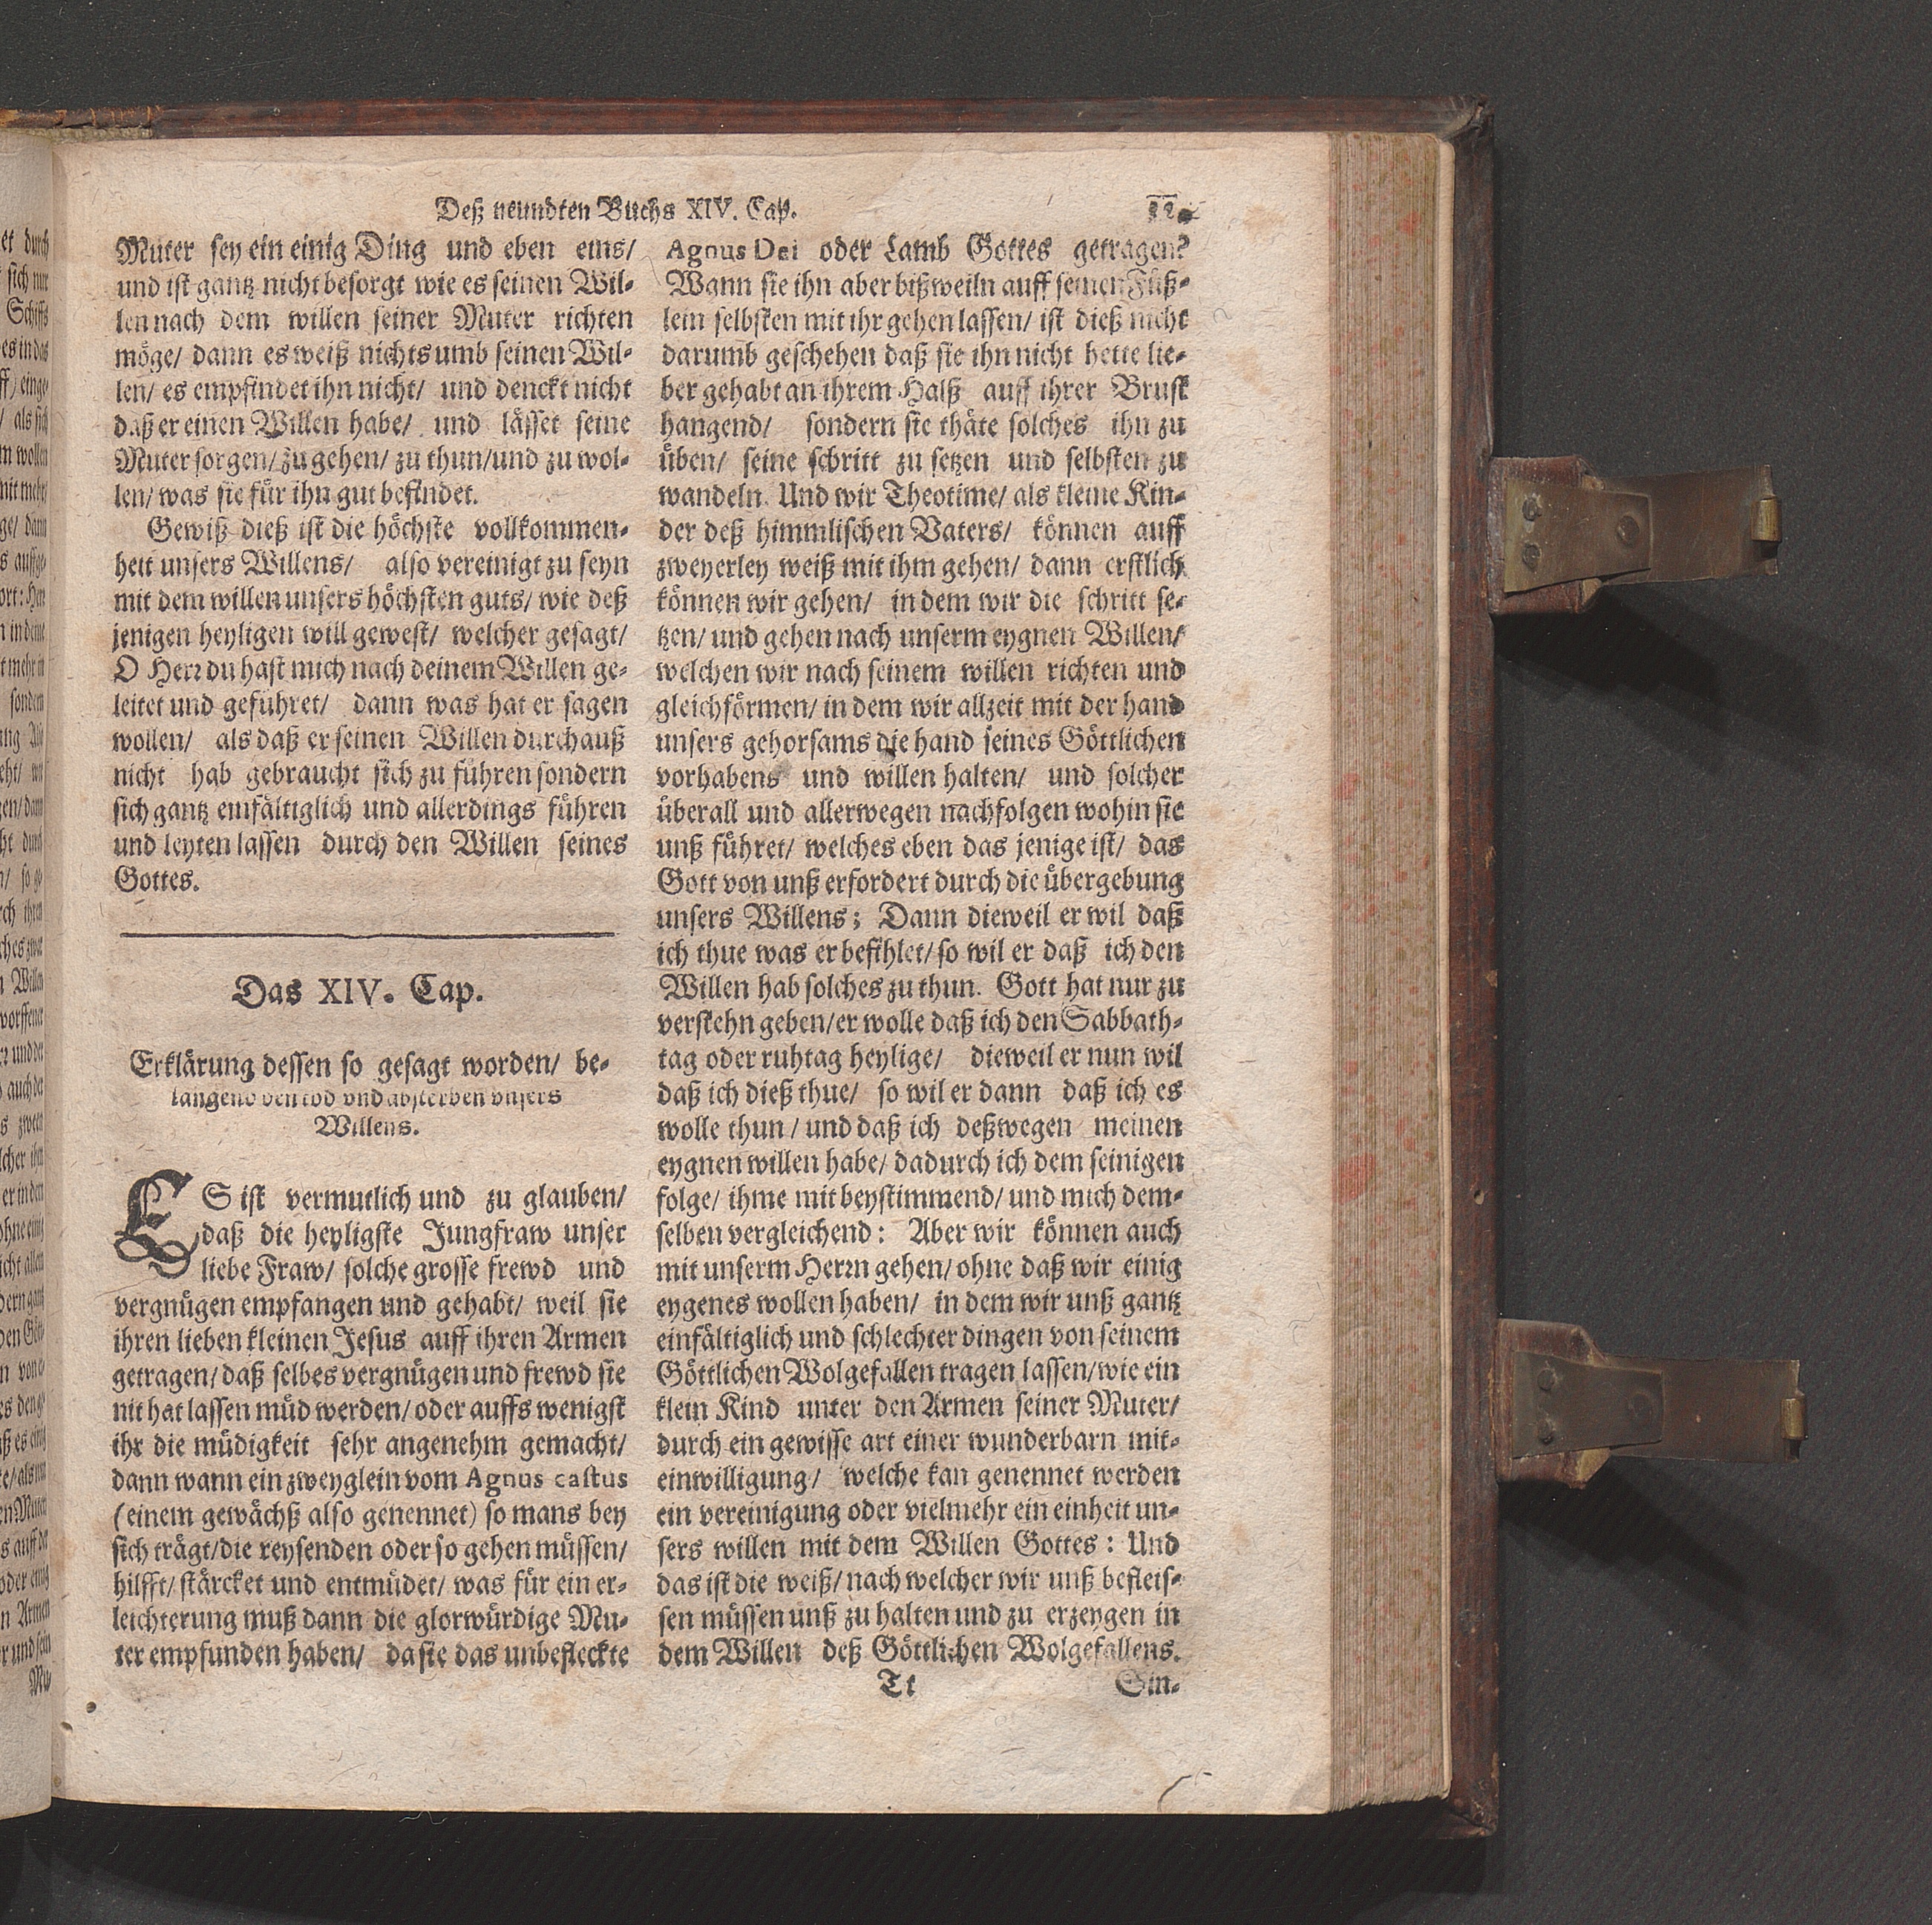 Deß neundten Buchs XIV. Cap.
Muter sey ein einig Ding und eben eins/
und ist gantz nicht besorgt wie es seinen Wil-
len nach dem willen seiner Muter richten
möge/ dann es weiß nichts umb seinen Wil-
len/ es empfindet ihn nicht/ und denckt nicht
daß er einen Willen habe/ und lässet seine
Muter sorgen/ zu gehen/ zu thun/ und zu wol-
len/ was sie für ihn gut befindet.
Gewiß dieß ist die höchste vollkommen-
heit unsers Willens/ also vereinigt zu seyn
mit dem willen unsers höchsten guts/ wie deß
jenigen heyligen will gewest/ welcher gesagt/
O Herr du hast mich nach deinem Willen ge-
leitet und geführet/ dann was hat er sagen
wollen/ als daß er seinen Willen durchauß
nicht hab gebraucht sich zu führen sondern
sich gantz einfältiglich und allerdings führen
und leyten lassen durch den Willen seines
Gottes.
Das XIV. Cap.
Erklärung dessen so gesagt worden/ be-
langend den tod vnd absterben vnsers
Willens.
ES ist vermutlich und zu glauben/
daß die heyligste Jungfraw unser
liebe Fraw/ solche grosse frewd und
vergnügen empfangen und gehabt/ weil sie
ihren lieben kleinen Jesus auff ihren Armen
getragen/ daß selbes vergnügen und frewd sie
nit hat lassen müd werden/ oder auffs wenigst
ihr die müdigkeit sehr angenehm gemacht/
dann wann ein zweyglein vom Agnus castus
(einem gewächß also genennet) so mans bey
sich trägt/ die reysenden oder so gehen müssen/
hilfft/ stärcket und entmüdet/ was für ein er-
leichterung muß dann die glorwürdige Mu-
ter empfunden haben/ da sie das unbefleckte
Agnus Dei oder Lamb Gottes getragen?
Wann sie ihn aber bißweiln auff seinen Füß-
lein selbsten mit ihr gehen lassen/ ist dieß nicht
darumb geschehen daß sie ihn nicht hette lie-
ber gehabt an ihrem Halß auff ihrer Brust
hangend/ sondern sie thäte solches ihn zu
üben/ seine schritt zu setzen und selbsten zu
wandeln. Und wir Theotime/ als kleine Kin-
der deß himmlischen Vaters/ können auff
zweyerley weiß mit ihm gehen/ dann erstlich
können wir gehen/ in dem wir die schritt se-
tzen/ und gehen nach unserm eygnen Willen/
welchen wir nach seinem willen richten und
gleichförmen/ in dem wir allzeit mit der hand
unsers gehorsams die hand seines Göttlichen
vorhabens und willen halten/ und solcher
überall und allerwegen nachfolgen wohin sie
unß führet/ welches eben das jenige ist/ das
Gott von unß erfordert durch die übergebung
unsers Willens; Dann dieweil er wil daß
ich thue was er befihlet/ so wil er daß ich den
Willen hab solches zu thun. Gott hat nur zu
verstehn geben/ er wolle daß ich den Sabbath-
tag oder ruhtag heylige/ dieweil er nun wil
daß ich dieß thue/ so wil er dann daß ich es
wolle thun/ und daß ich deßwegen meinen
eygnen willen habe/ dadurch ich dem seinigen
folge/ ihme mit beystimmend/ und mich dem-
selben vergleichend: Aber wir können auch
mit unserm Herrn gehen/ ohne daß wir einig
eygenes wollen haben/ in dem wir unß gantz
einfältiglich und schlechter dingen von seinem
Göttlichen Wolgefallen tragen lassen/ wie ein
klein Kind unter den Armen seiner Muter/
durch ein gewisse art einer wunderbarn mit-
einwilligung/ welche kan genennet werden
ein vereinigung oder vielmehr ein einheit un-
sers willen mit dem Willen Gottes: Und
das ist die weiß/ nach welcher wir unß befleis-
sen müssen unß zu halten und zu erzeygen in
dem Willen deß Göttlichen Wolgefallens.
Tt Sin-